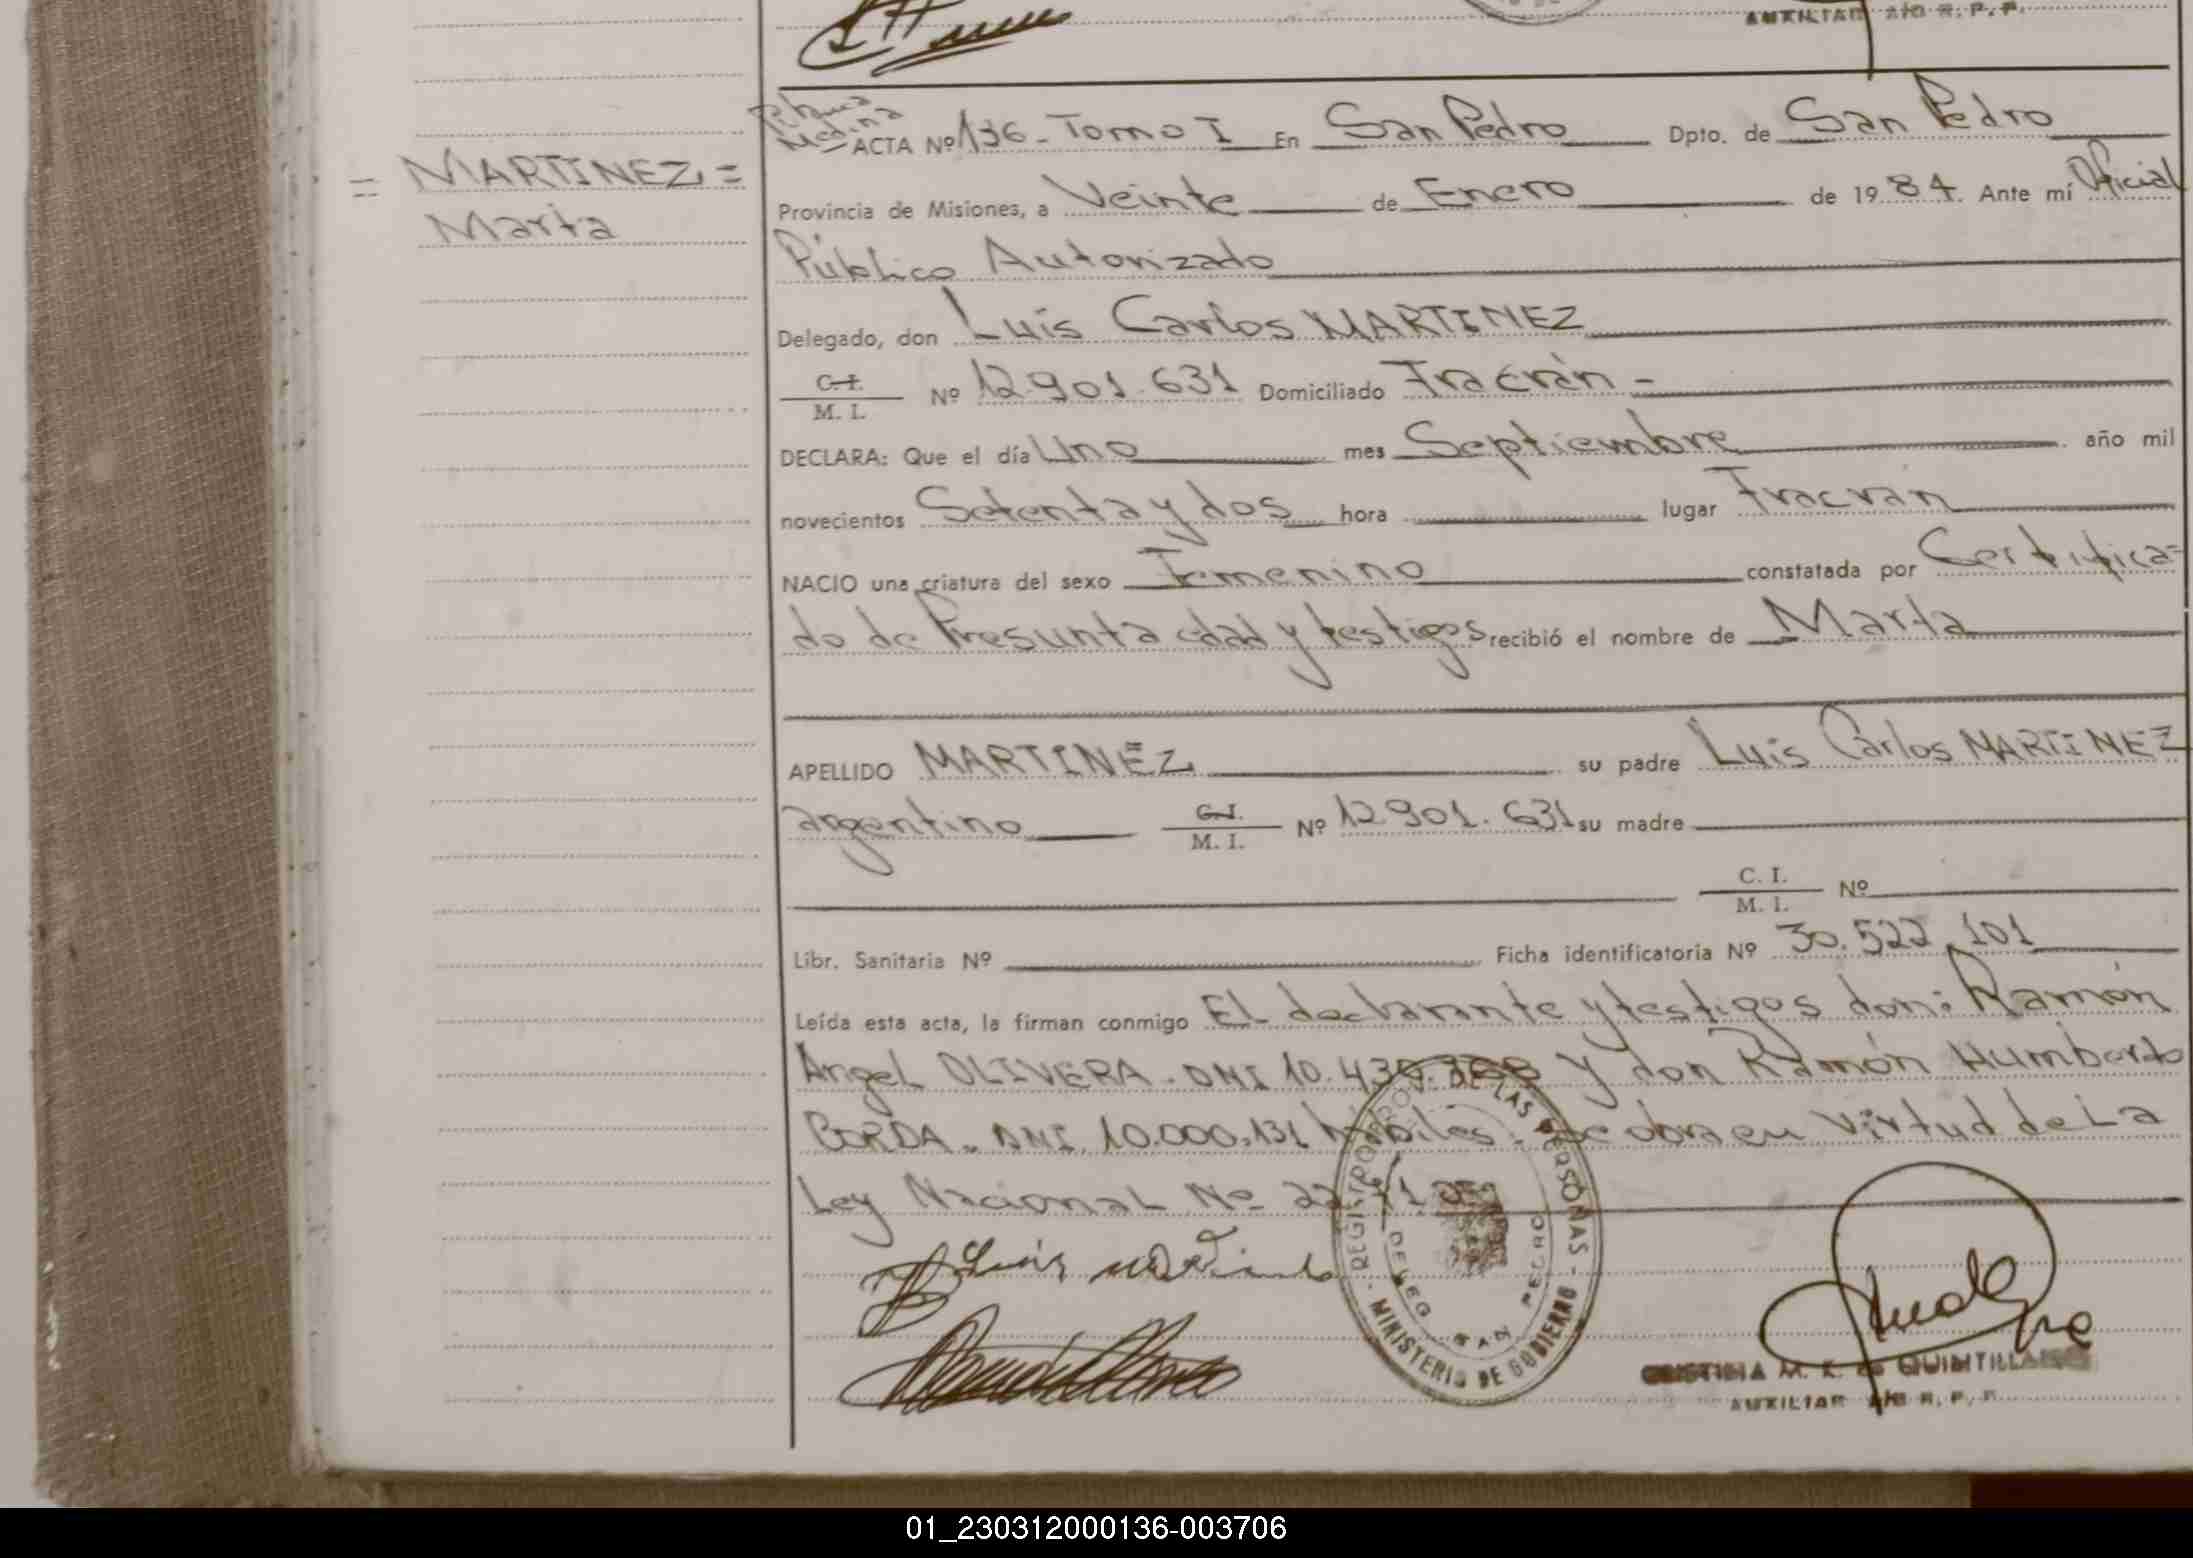 AUXILIAR A/C R. P. P.
Medina
ACTA Nº 136 - Tomo I En San Pedro Dpto. de San Pedro
= MARTINEZ =
Marta
Provincia de Misiones, a Veinte de Enero de 1984. Ante mí Oficial
Público Autorizado
Delegado, don Luis Carlos MARTINEZ
C. I. / M. I. Nº 12.901.631 Domiciliado Fracràn -
DECLARA: Que el día Uno mes Septiembre año mil
novecientos Setenta y dos hora lugar Fracran
NACIO una criatura del sexo Femenino constatada por Certifica=
do de Presunta edad y testigos recibió el nombre de Marta
APELLIDO MARTINEZ su padre Luis Carlos MARTINEZ
argentino C. I. / M. I. Nº 12.901.631 su madre
C. I. / M. I. Nº
Libr. Sanitaria Nº Ficha identificatoria Nº 30.522.101
Leída esta acta, la firman conmigo El declarante y testigos don: Ramón
Angel OLIVERA. DNI 10. Y don Ramón Humberto
DNI 10.000.131 hábiles. Se obra en virtud de La
Ley Nacional Nº
Luis
REGISTRO PROV. DE LAS PERSONAS - MINISTERIO DE GOBIERNO -
DELEG. SAN PEDRO
M. K. de QUINTILLAN
AUXILIAR A/C R. P. P.
01_230312000136-003706